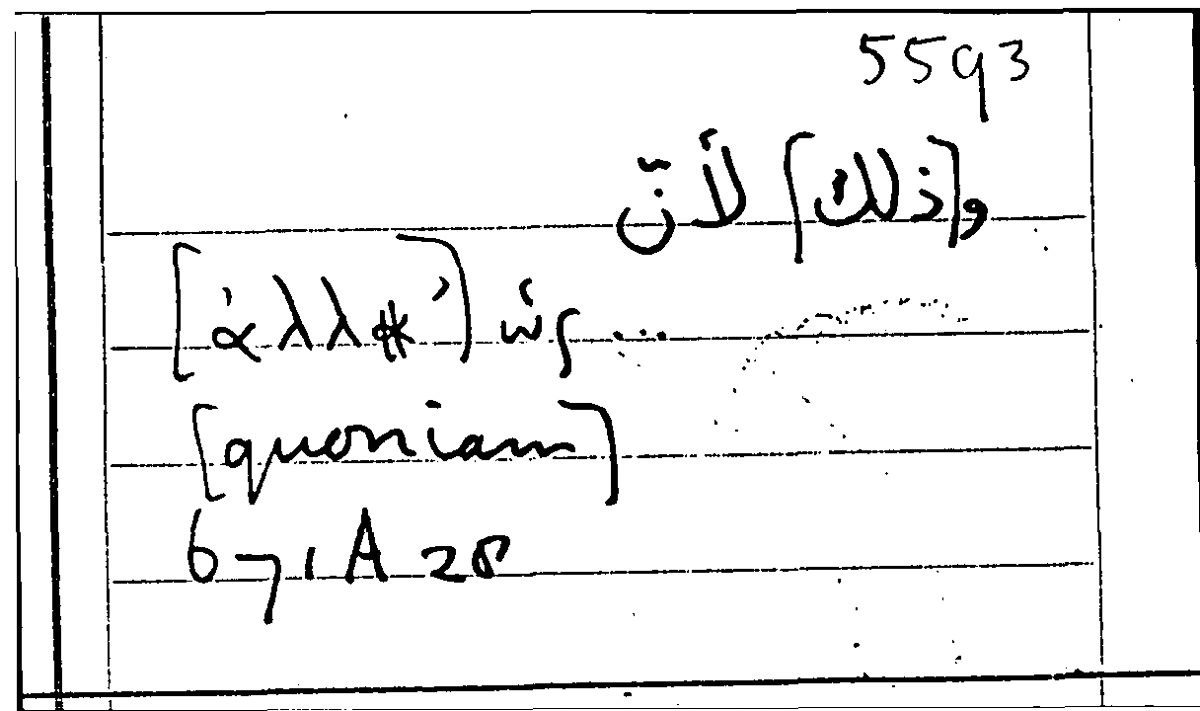 5593
و[ذلك] لأنّ
[ἀλλ’] ὡς ...
[quoniam]
671 A 28